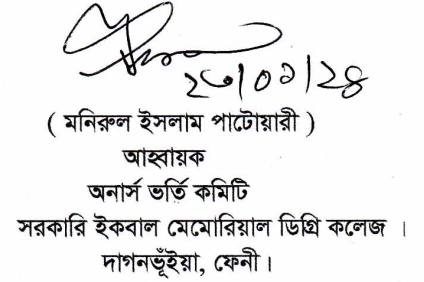 ২৩/০১/২৪
( মনিরুল ইসলাম পাটোয়ারী )
আহ্বায়ক
অনার্স ভর্তি কমিটি
সরকারি ইকবাল মেমোরিয়াল ডিগ্রি কলেজ ।
দাগনভূঁইয়া, ফেনী।